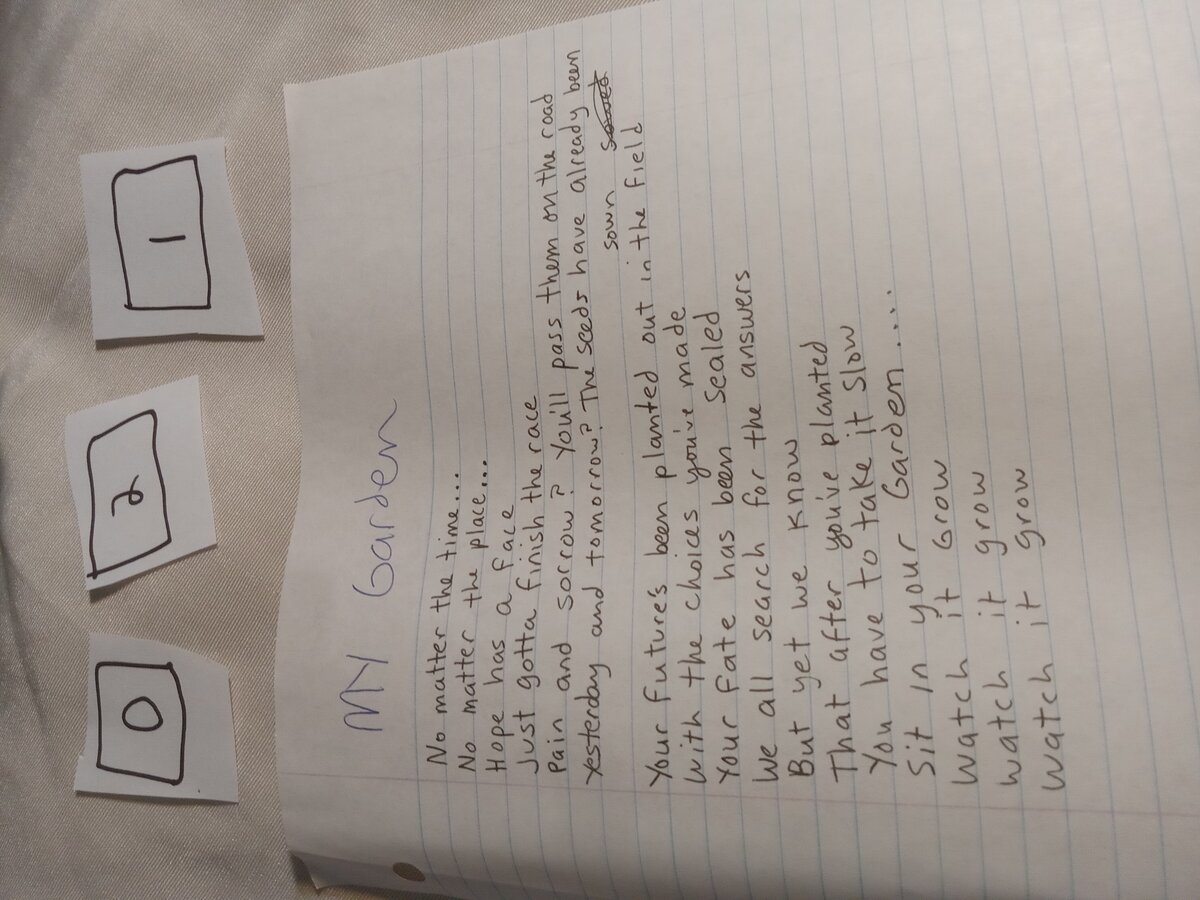 0 2 1
My Garden
No matter the time...
No matter the place...
Hope has a face
Just gotta finish the race
Pain and sorrow? You'll pass them on the road
Yesterday and tomorrow? The seeds have already been
sown sowed
Your future's been planted out in the field
With the choices you've made
Your fate has been sealed
We all search for the answers
But yet we know
That after you've planted
You have to take it slow
Sit in your Garden....
Watch it Grow
Watch it grow
Watch it grow